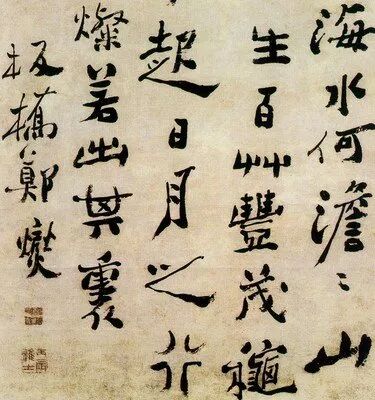 海水何澹〻山
生百艸豐茂龝
起日月之行
燦若出其裏
板橋鄭燮